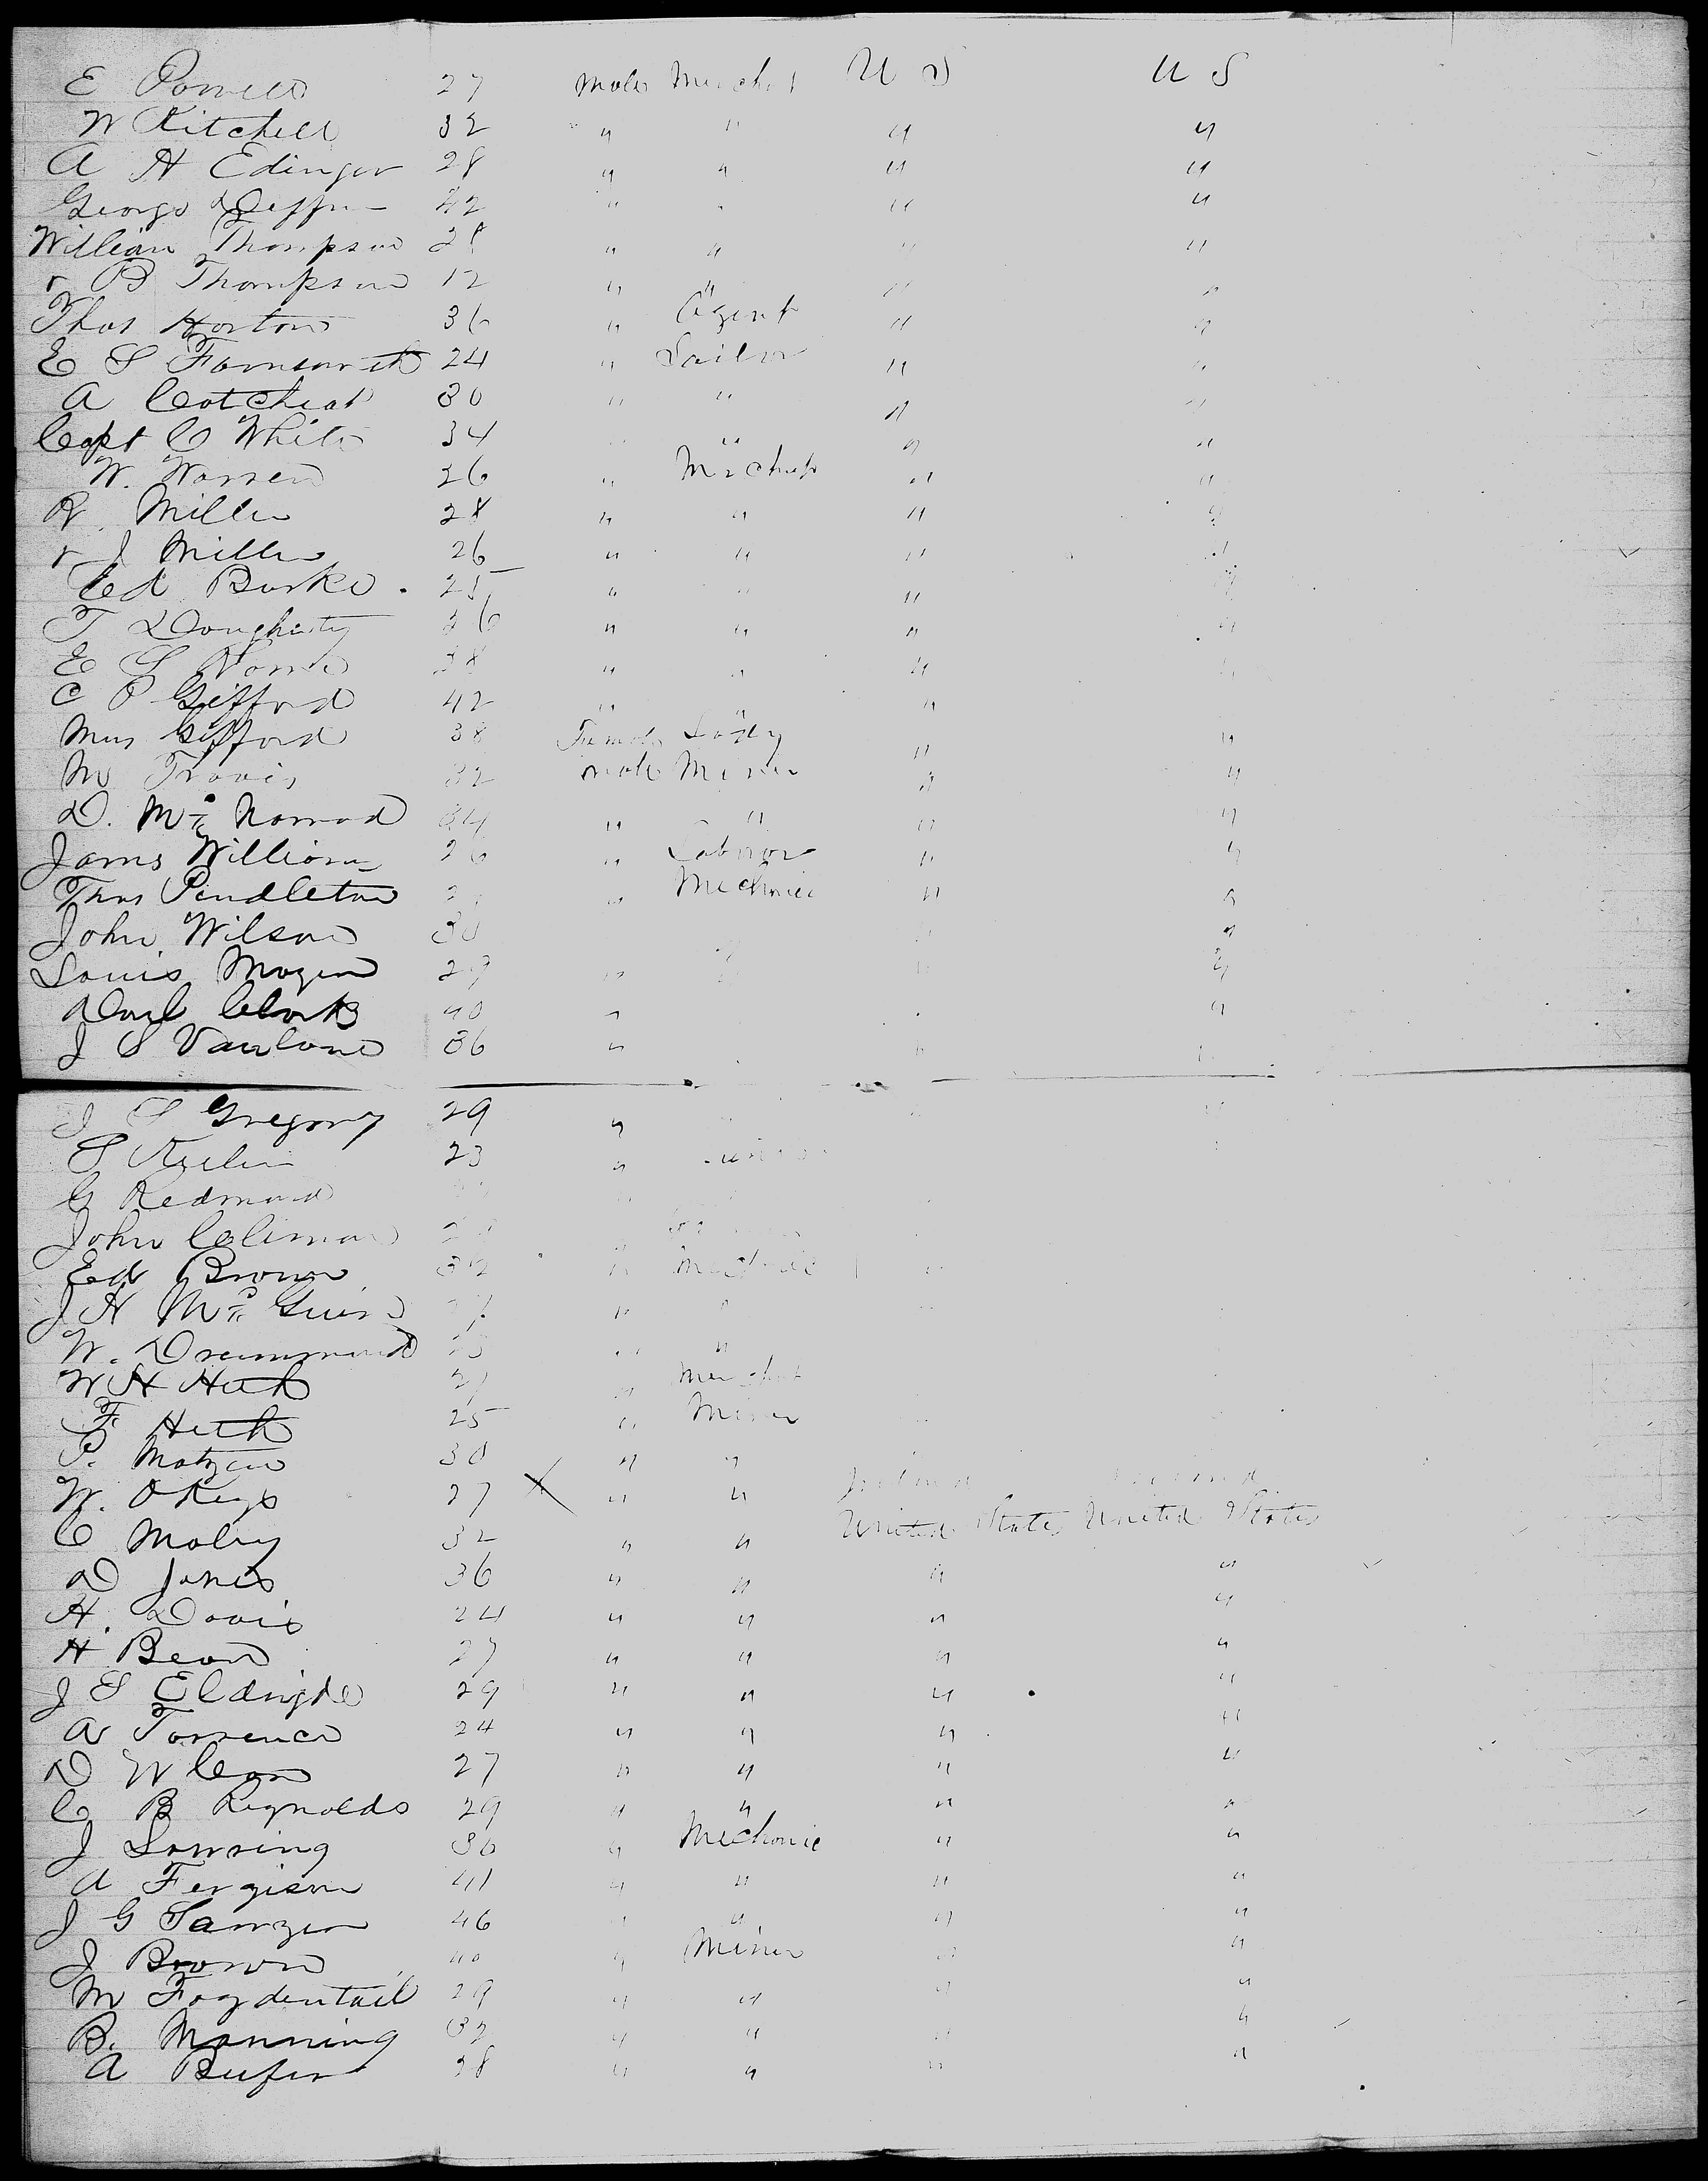 E Powell 27 Male Mercht U S U S
W Kitchell 32 " " " "
A H Edinger 28 " " " "
George 42 " " " "
William Thompson " " " "
B Thompson 12 " " " "
Thos Horton 36 " Agent " "
E S Farnsworth 24 " Sailor " "
A 30 " " " "
Capt C White 34 " " " "
W. Warren 26 " Merchnt " "
R. Miller 28 " " " "
J Miller 26 " " " "
Ed Burke 25 " " " "
T Dougherty 26 " " " "
E S 38 " " " "
C P Gifford 42 " " "
Mrs Gifford 38 Female Lady " "
M Travis 32 Male Miner " "
D. Mc Namad 34 " " " "
Jams William 26 " Laboror " "
Thos Pendleton " Mechanic " "
John Wilson 30 "
Louis Mozen 29 " " " "
Clark 40 " "
J S Vanlane 36 " " "
J S Gregory 29 "
S 23 "
G Redmond
John Coliman
Ed Brown 32 " Mechanic "
J H Mc Guire " "
W. Drummond " "
W H Heth 27 " Merchnt
F Heth 25 " Miner
P. Matzen 30 " "
W. OKeys 27 X " " Ireland Ireland
C Maley 32 " " United States United States
D Jones 36 " " " "
H. Davis 24 " " " "
H Bean 27 " " " "
J S Eldrigde 29 " " " "
A Torrence 24 " " " "
D W 27 " " " "
C B Reynolds 29 " " " "
J Lowring 36 " Mechanic " "
A Fergison 41 " " " "
J G 46 " " " "
J Brown 40 " Miner " "
M Fogdentail 29 " " " "
B. Manning 32 " " " "
A 38 " " " "